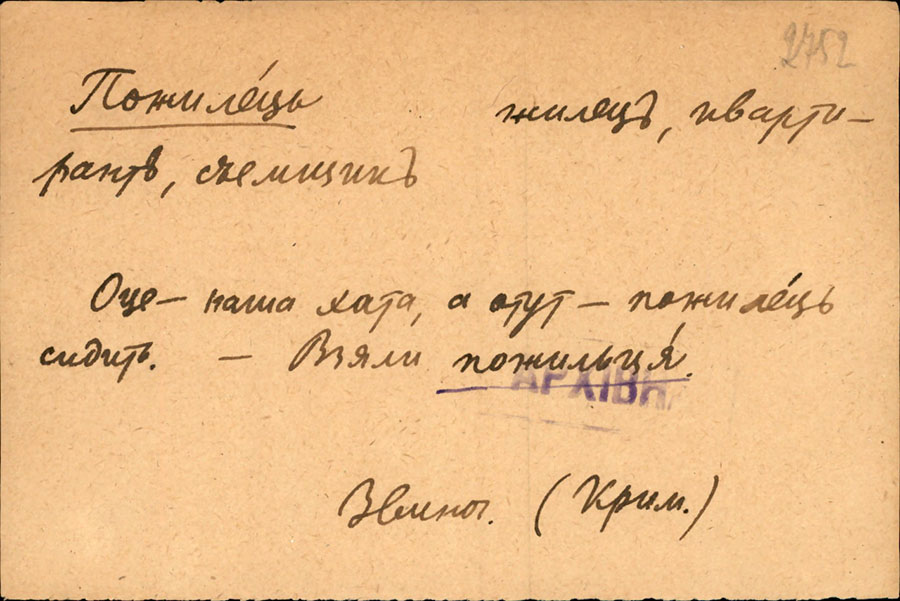 2752
Пожиле́ць жилецъ, кварти-
рантъ, съемщикъ
Оце – наша хата, а отут – пожиле́ць
сидить. – Взяли пожильця́.
АРХІВН
Звиног. (Крим.)